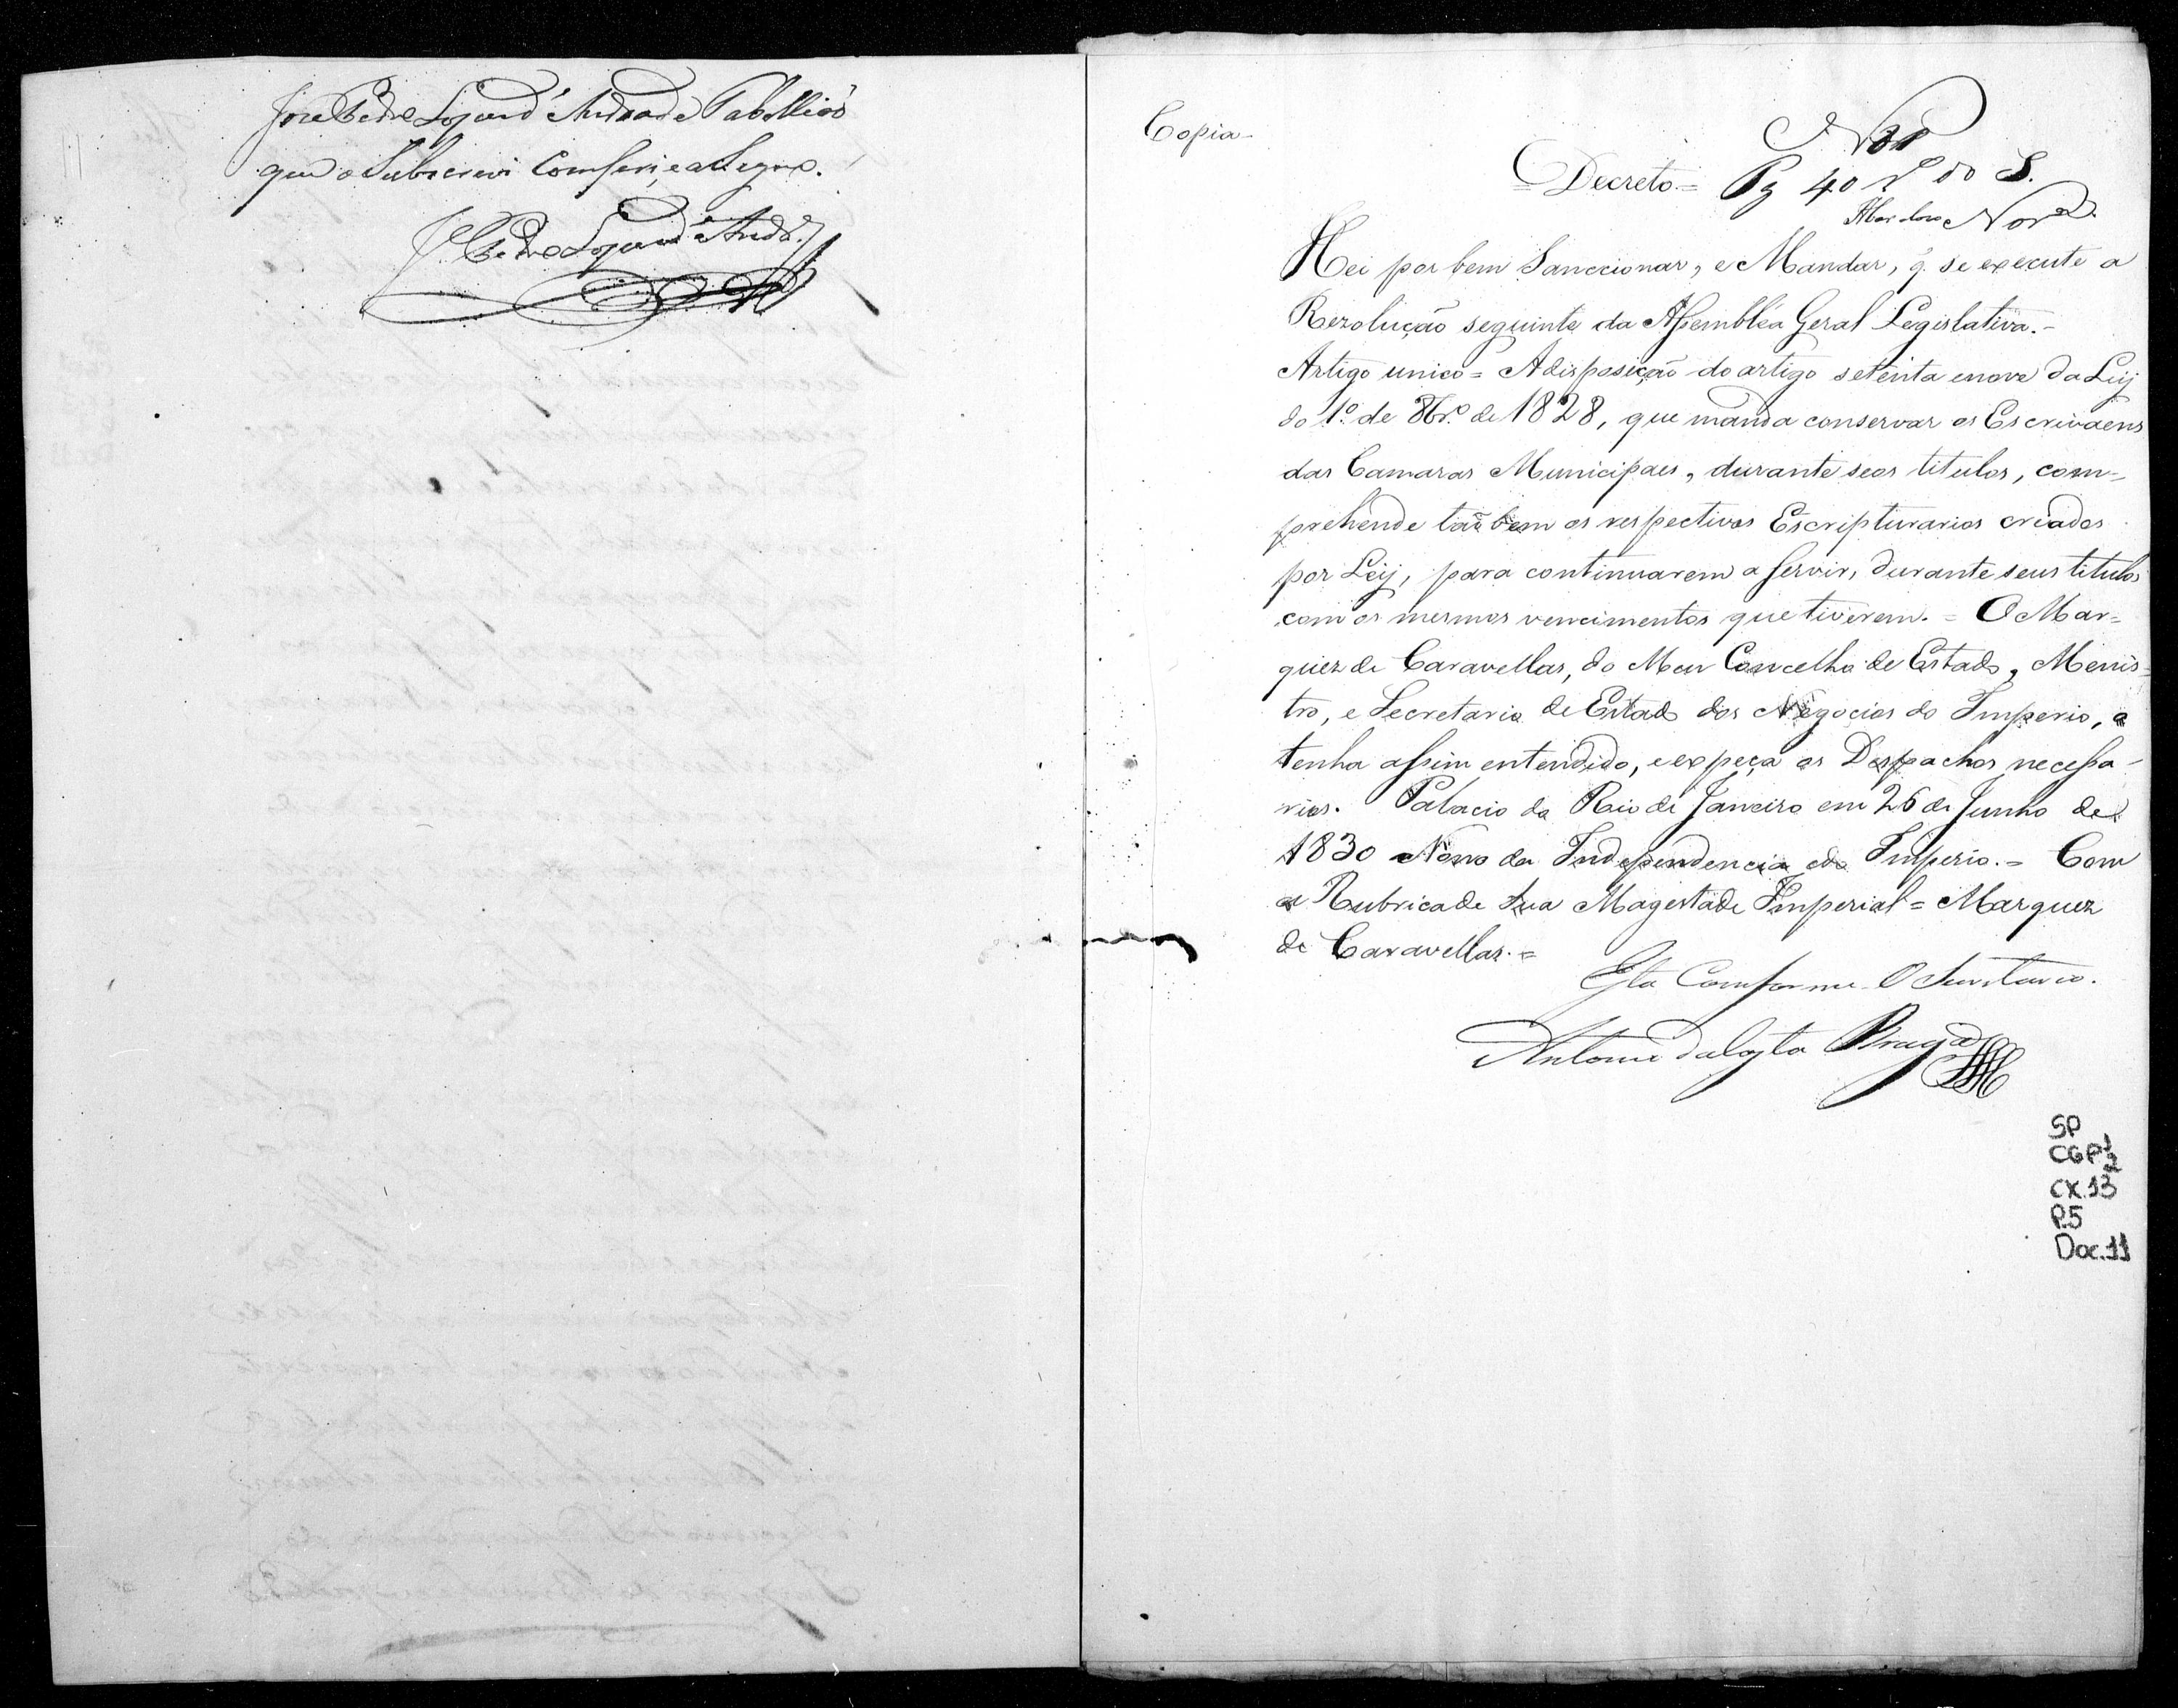 José Pedro Lopes d'Andrade Tabellião
que o Subscrevi Comferi, e aSegno.
Jé Pedro Lopes d'Andr.e
Copia
No
= Decreto = Pg 40 rs do S.
Nor
Hei por bem Sanccionar, e Mandar, q. se execute a
Rezolução seguinte da Assemblea Geral Legislativa.-
Artigo unico = A disposição do artigo setenta enove da Ley
do 1.º de 8br.º de 1828, que manda conservar os Escrivaens
das Camaras Municipaes, durante seos titulos, com-
prehende tão bem os respectivos Escripturarios criados
por Ley, para continuarem a servir, durante seus titulos
com os mesmos vencimentos que tiverem. = O Mar=
quez de Caravellas, do Meu Concelho de Estado, Menis-
tro, e Secretario de Estado dos Negocios do Imperio, o
tenha assim entendido, e expeça os Despachos necessa-
rios. Palacio do Rio de Janeiro em 26 de Junho de
1830 Nono da Independencia edo Imperio. = Com
a Rubrica de Sua Magestade Imperial = Marquez
de Caravellas. =
Esta Comforme O Secretario.
Antonio da Costa Braga
SP
CGP1
CX.13
P.5
Doc.11